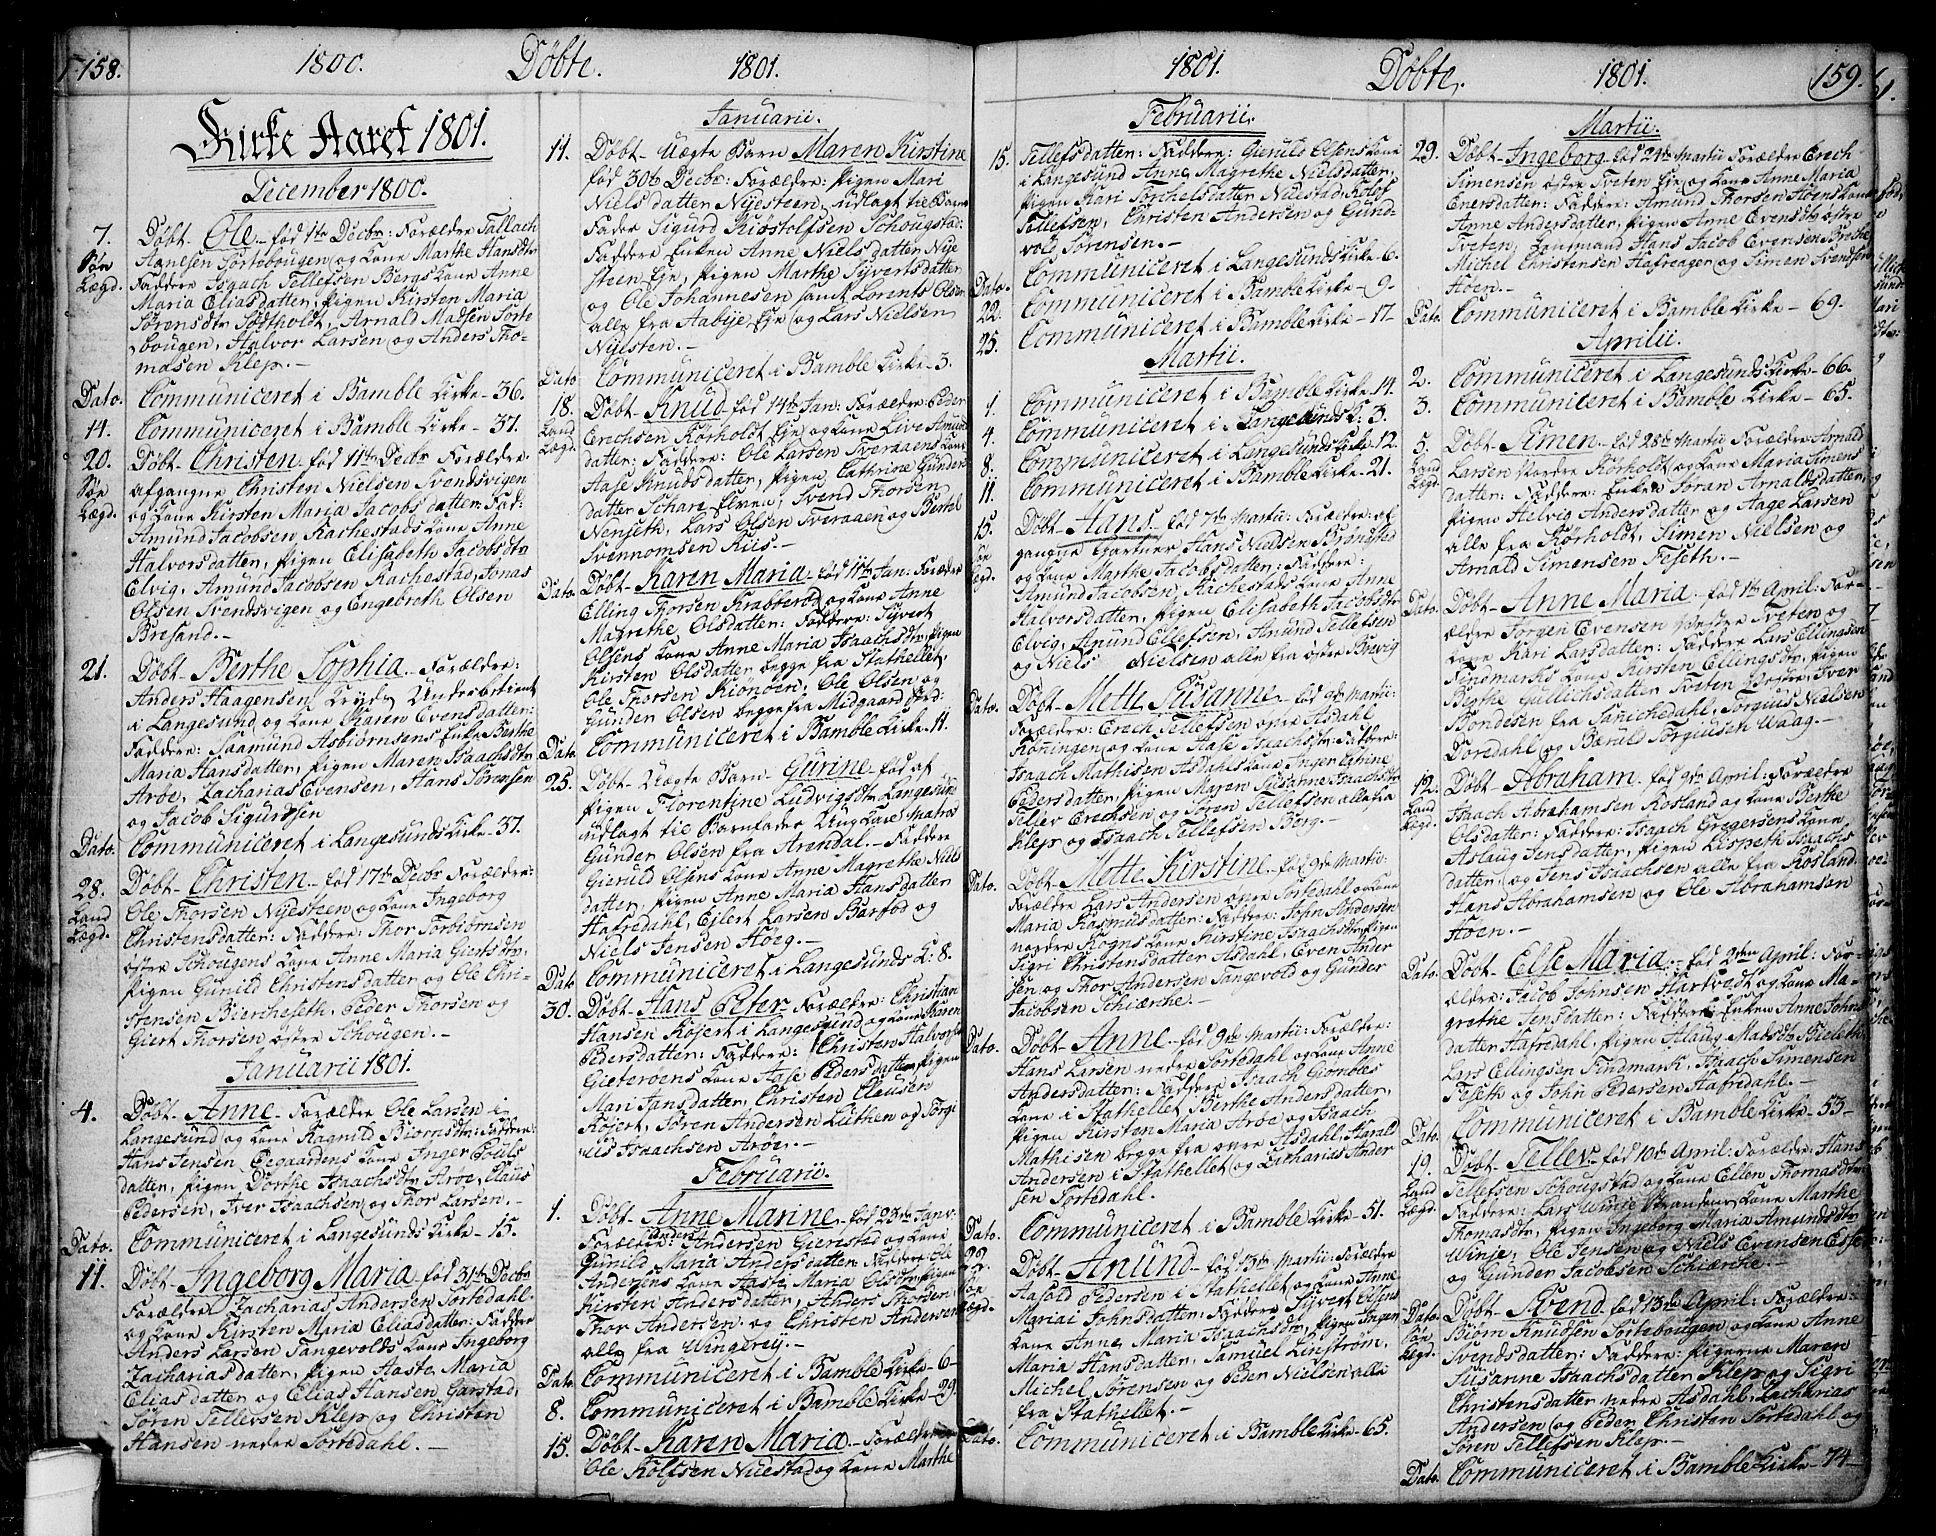 158. 1800. Døbte. 1801.
Kirke Aaret 1801.
December 1800.
7. Døbt Ole født 1te Decbr: Forældre Tallach
Søe Hansen Sortebougen og Kone Marthe Hansdtr
Lægd. Faddere Isaach Tellefsen Bergs Kone Anne
Maria Eliasdatter, Pigen Kirsten Maria
Sørensdtr Sødtholdt, Arnold Madsen Sorte
bougen, Halvor Larsen og Anders Tho-
masen Klep. —
Dato. Communiceret i Bamble Kirke - 36.
14. Communiceret i Bamble Kirke - 37.
20. Døbt Christen født 11te Decbr Forældre:
Søe afgangne Christen Nielsen Svendsvigen
Lægd. og Kone Kirsten Maria Jacobsdatter: Fad:
Amund Jacobsen Rachestads Kone Anne
Halvorsdatter, Pigen Elisabeth Jacobsdtr
Elvig, Amund Jacobsen Rachestad, Jonas
Olsen Svendsvigen og Engebreth Olsen
Bresand. —
21. Døbt Berthe Sophia Forældre:
Anders Haagensen Kryds Underbetient
i Langesund og Kone Karen Evensdatter:
Faddere: Saamund Asbiørnsens Enke Berthe
Maria Hansdatter, Pigen Maren Isaachsdtr
Aroe, Zacharias Evensen, Hans Sørensen
og Jacob Sigurdsen
Dato. Communiceret i Langesunds Kirke - 37.
28. Døbt Christen født 17de Decbr Forældre:
Land Ole Thorsen Nyesteen og Kone Ingeborg
Lægd. Christensdatter: Faddere: Thor Torbiørnsen
østre Schougens Kone Anne Maria Giertsdtr,
Pigen Gunild Christensdatter og Ole Chri-
stensen Biercheseth, Peder Thorsen og
Giert Thorsen østre Schougen. —
Januarii 1801.
4. Døbt Anne Forældre Ole Larsen i
Langesund og Kone Ragnild Biørnsdtr: Faddere:
Hans Jensen Øegaardens Kone Inger Pouls
datter, Pigen Dorthe Isaachsdtr Aroe, Claus
Pedersen, Iver Isaachsen og Thor Larsen. —
Dato. Communiceret i Langesunds Kirke - 15.
11. Døbt Ingeborg Maria født 31te Decbr
Forældre Zacharias Andersen Sortedahl
og Kone Kirsten Maria Eliasdatter: Faddere
Anders Larsen Tangevolds Kone Ingeborg
Zachariasdatter, Pigen Aaste Maria
Eliasdatter og Elias Hansen Garstad,
Søren Tellevsen Klep og Christen
Hansen nedre Sortedahl. —
Januarii.
11. Døbt Uægte Barn Maren Kirstine
født 30te Decbr: Forældre: Pigen Mari
Nielsdatter Nyesteen, udlagt til Barne
Fader Sigurd Kistolfsen Schougstad:
Faddere Enken Anne Nielsdatter Nye
steen Eje, Pigen Marthe Syvertsdatter
og Ole Johannesen samt Lorents Olsen
alle fra Aabye Eje og Lars Nielsen
Nyesten. —
Dato Communiceret i Bamble Kirke - 3.
18. Døbt Knud født 14de Jan: Forældre: Peder
Land Erechsen Kørholdt Eje og Kone Live Amund
Lægd. datter: Faddere: Ole Larsen Tveraaens Kone
Aase Knudsdatter, Pigen Cathrine Gunders
datter Schare Elven, Svend Thorsen
Nenseth, Lars Olsen Tveraaen og Bertel
Svennomsen Riis. —
Dato. Døbt Karen Maria født 11te Jan: Forældre
Elling Thorsen Krabberød og Kone Anne
Magrethe Olsdatter: Faddere: Syvert
Olsens Kone Anne Maria Isaachsdtr, Pigen
Kirsten Olsdatter begge fra Stathellet,
Ole Thorsen Kiønøen, Ole Olsen og
Gunder Olsen begge fra Midgaard Ørd.
Dato. Communiceret i Bamble Kirke. 11.
25. Døbt Uægte Barn Gurine født af
Pigen Florentine Ludvigsdtr Langesund
udlagt til Barnfader Ung Karl Matros
Gunder Olsen fra Arendal. - Faddere
Gieruld Olsens Kone Anne Magrethe Niels
datter, Pigen Anne Maria Hansdatter
Hafredahl, Ejlert Larsen Barfod og
Niels Jensen Høeg. —
Dato Communiceret i Langesunds K: 8.
30. Døbt Hans Peter Forældre: Christian
Hansen Rojert i Langesund og Kone Karen
Pedersdatter: Faddere: Christen Halvorsen
Gieterøens Kone Aase Pedersdatter, Pigen
Mari Jansdatter, Christen Clausen
Rojert, Søren Andersen Luthen og Jørgi
nis Isaachsen Aroe. —
Februarii.
1. Døbt Anne Marine født 23de Janv:
Forældre: Anders Andersen Gierestad og Kone
Gunild Maria Andersdatter Faddere Ole
Andersens Kone Aaste Maria Olsdtr, Pigen
Kirsten Andersdatter, Anders Thorsen
Thor Andersen og Christen Andersen
alle fra Wingerej. —
Dato. Communiceret i Bamble Kirke - 6 -
8. Communiceret i Bamble Kirke - 29.
15. Døbt Karen Maria Forældre
Ole Rolfsen Nuestad og Kone Marthe
1801. Døbte. 1801. 159.
Februarii.
15. Tellefsdatter: Faddere: Gieruld Olsens Kone
i Langesund Anne Magrethe Nielsdatter,
Pigen Kari Torchelsdatter Nuestad, Rolof
Tellefsen, Christen Andersen og Gund-
vold Sørensen. —
Dato. Communiceret i Langesunds Kirke - 6.
22. Communiceret i Bamble Kirke - 9.
25. Communiceret i Bamble Kirke - 17 -
Martii.
1. Communiceret i Bamble Kirke - 14.
4. Communiceret i Langesunds K: 3.
8. Communiceret i Langesunds Kirke - 12.
11. Communiceret i Bamble Kirke - 21.
15. Døbt Hans født 7de Martii: Forældre: af
Søe gangne Gartner Hans Nielsen Brønstad
Lægd. og Kone Marthe Jacobsdatter: Faddere:
Amund Jacobsen Rachestads Kone Anne
Halvorsdatter, Pigen Elisabeth Jacobsdtr
Elvig, Anund Ellefsen, Anund Tellefsen
og Niels Nielsen alle fra østre Brevig
Dato. Døbt Mette Susanne født 9de Martii:
Forældre: Erech Tellefsen øvre Asdahl
Roningen og Kone Aase Isaachsdtr: Faddere:
Isaach Mathisen Asdahls Kone Inger Catrine
Pedersdatter, Pigen Maren Susanne Isaachsdtr
Tellev Erechsen og Søren Tellefsen alle fra
Klep og Isaach Tellefsen Berg. —
Dato. Døbt Mette Kirstine født 9de Martii:
Forældre Lars Andersen øvre Sortedahl og Kone
Maria Rasmusdatter: Faddere: John Andersen
nordre Rogns Kone Kirstine Isaachsdtr, Pigen
Sigri Christensdatter Asdahl, Even Ander
sen og Thor Andersen Tangevold og Gunder
Jacobsen Schiærche. —
Dato. Døbt Anne født 9de Martii: Forældre:
Hans Larsen nedre Sortedahl og Kone Anne
Andersdatter: Faddere Isaach Grønbles
Kone i Stathellet Berthe Andersdatter,
Pigen Kirsten Maria Aroe og Isaach
Mathisen begge fra øvre Asdahl, Harald
Andersen i Stathellet og Zacharias Ander
sen Sortedahl.
Dato. Communiceret i Bamble Kirke - 51.
22. Døbt Anund født 13de Martii: Forældre
Søe Hasold Pedersen i Stathellet og Kone Anne
Lægd. Mariai Johnsdatter: Faddere Syvert Olsens
Kone Anne Maria Isaachsdtr, Pigen Inger
Maria Hansdatter, Samuel Linstrøm,
Michel Sørensen og Peder Nielsen alle
fra Stathellet. —
Dato. Communiceret i Bamble Kirke - 65.
Martii.
29. Døbt Ingeborg født 24de Martii Forældre Erech
Simensen østre Tveten Eje og Kone Anne Maria
Enersdatter: Faddere: Amund Thorsen Høens Kone
Anne Andersdatter, Pigen Anne Evensdtr østre
Tveten, Landmand Hans Jacob Evensen Brethe
Michel Christensen Hafreager og Simen Svendsen
Høen. —
Dato. Communiceret i Bamble Kirke - 69.
Aprilii
2. Communiceret i Langesunds Kirke - 66.
3. Communiceret i Bamble Kirke - 65.
5. Døbt Simen født 28de Martii Forældre Arnold
Land Larsen Nordre Kørholdt og Kone Maria Simens
Lægd. datter: Faddere: Enken Søran Arnoldsdatter,
Pigen Helvig Andersdatter og Aage Larsen
alle fra Kørholdt, Simen Nielsen og
Arnold Simensen Feseth. —
Dato. Døbt Anne Maria født 1te April: For-
ældre Jørgen Evensen Vestre Tveten og
Kone Kari Larsdatter: Faddere Lars Ellingsen
Findmarks Kone Kirsten Ellingsdtr, Pigen
Berthe Gullichsdatter Tveten Vestre, Iver
Bondesen fra Sanichedahl, Torguis Nielsen
Dordahl og Bæruld Torguisen Waag. —
12. Døbt Abraham født 9de April: Forældre
Land Isaach Abrahamsen Rosland og Kone Berthe
Lægd. Olsdatter: Faddere: Isaach Gregersens Kone
Aslaug Jensdatter, Pigen Lispeth Isaachs
datter, og Jens Isaachsen alle fra Rosland.
Hans Abrahamsen og Ole Abrahamsen
Høen. —
Dato. Døbt Else Maria født 2den April: For-
ældre: Jacob Johnsen Hartvedt og Kone Ma-
grethe Jensdatter: Faddere: Enken Anne Johns
datter Hafredahl, Pigen Aslaug Matsdtr Fieleth
Lars Ellingsen Findmark, Isaach Simensen
Feseth og John Pedersen Hafredahl. —
Dato. Communiceret i Bamble Kirke - 53 -
19. Døbt Tellev født 10de April: Forældre: Hans
Land Tellefsen Schougstad og Kone Ellen Thomasdtr
Lægd. Faddere: Lars Winje Strandens Kone Marthe
Thomasdtr, Pigen Ingeborg Maria Amundsdtr
Winje, Ole Jensen og Niels Evensen Eseth
og Gunder Jacobsen Schiærche. —
Dato. Døbt Svend født 13de April: Forældre:
Søe Biørn Knudsen Sortebougen og Kone Anne
Lægd. Svendsdatter: Faddere: Pigerne Maren
Susanne Isaachsdatter Klep og Sigri
Christensdatter nedre Asdahl, Zacharias
Andersen og Peder Christen Sortedahl og
Søren Tellefsen Klep. —
Dato. Communiceret i Bamble Kirke - 74 -